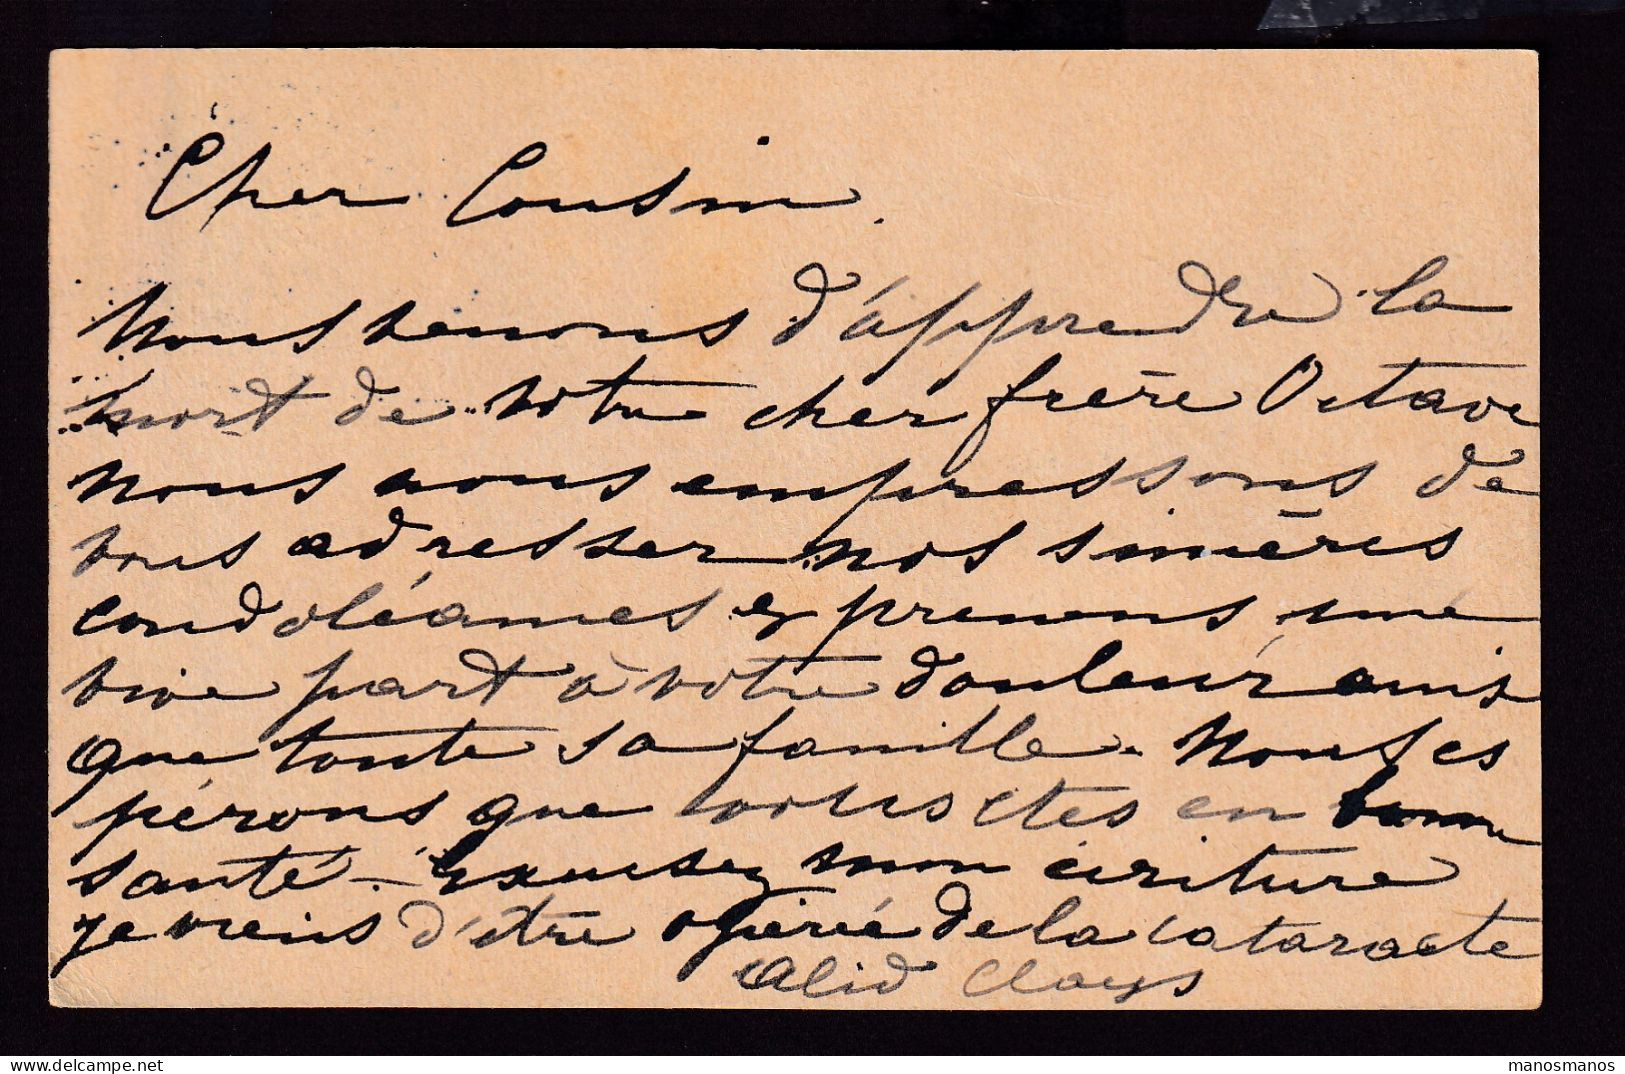 Cher Cousin.
Nous venons d'apprendre la
mort de votre cher frère Octave
nous nous empressons de
vous adresser nos sincères
condoléances et prenons une
vive part à votre douleur ainsi
que toute sa famille. Nous es
pérons que vous etes en bonne
santé. - Excusez mon écriture
je viens d'être opérée de la cataracte
Alid Claeys
manosmanos